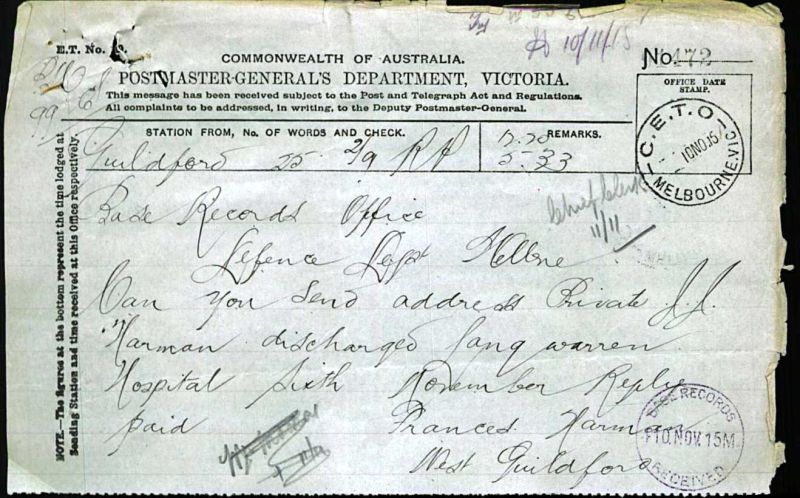 E.T. No.
10/11/15
COMMONWEALTH OF AUSTRALIA.
POSTMASTER-GENERAL'S DEPARTMENT, VICTORIA.
This message has been received subject to the Post and Telegraph Act and Regulations.
All complaints to be addressed, in writing, to the Deputy Postmaster-General.
No. 172
OFFICE DATE
STAMP.
C.E.T.O
10NO15
MELBOURNE.VIC
99
STATION FROM, No. OF WORDS AND CHECK.
REMARKS.
Guildford 25 2/9 RP
5-33
Base Records Office
Chief Clerk
11/11
Defence Dept Melbne
Can you send address Private J.J.
Harman discharged Lang warren
Hospital Sixth November Reply
paid Frances Harman
West Guildford
BASE RECORDS
10.NOV.15
RECEIVED
NOTE.—The figures at the bottom represent the time lodged at
Sending Station and time received at this Office respectively.